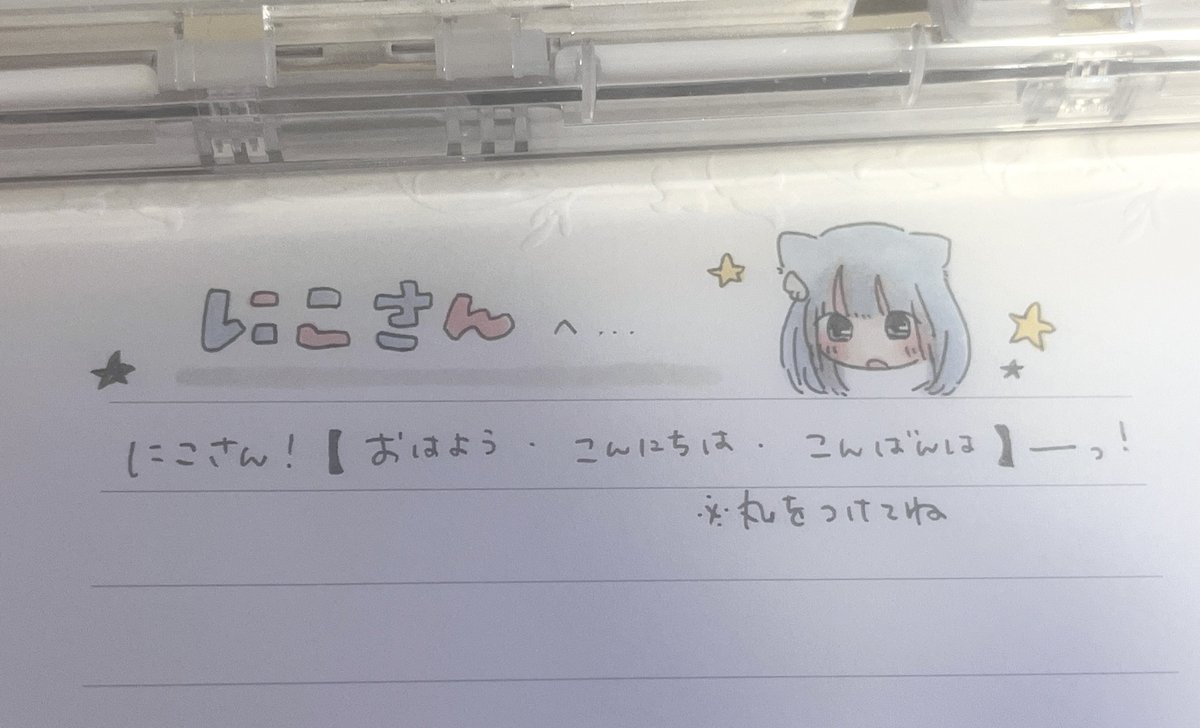 にこさんへ…
にこさん！【おはよう・こんにちは・こんばんは】ーっ！
※丸をつけてね